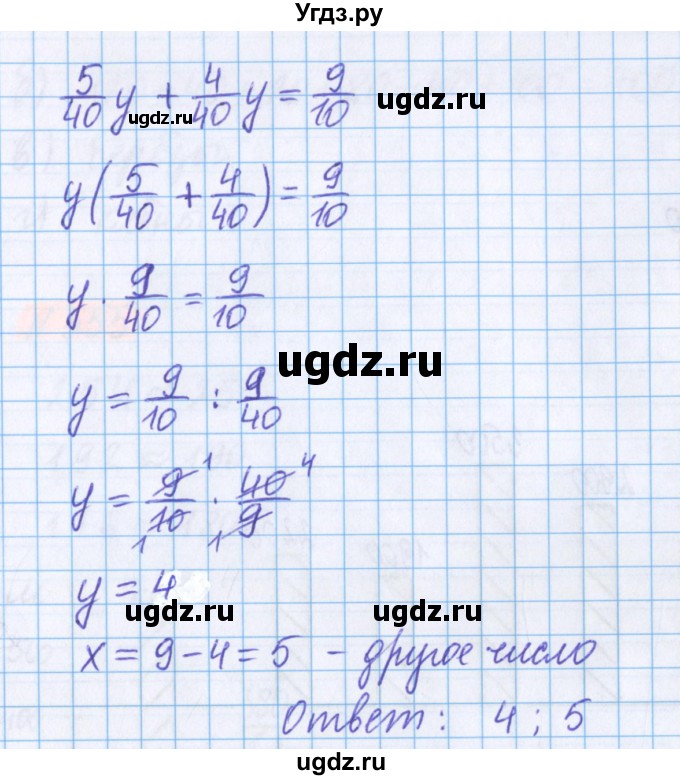 Угдз.ру
5/40 y + 4/40 y = 9/10
ugdz.ru
ugdz.ru
y(5/40 + 4/40) = 9/10
y · 9/40 = 9/10
ugdz.ru
y = 9/10 : 9/40
y = 9/10 · 40/9
1 4
1 1
y = 4
ugdz.ru
ugdz.ru
x = 9 - 4 = 5 - другое число
Ответ: 4 ; 5
ugdz.ru